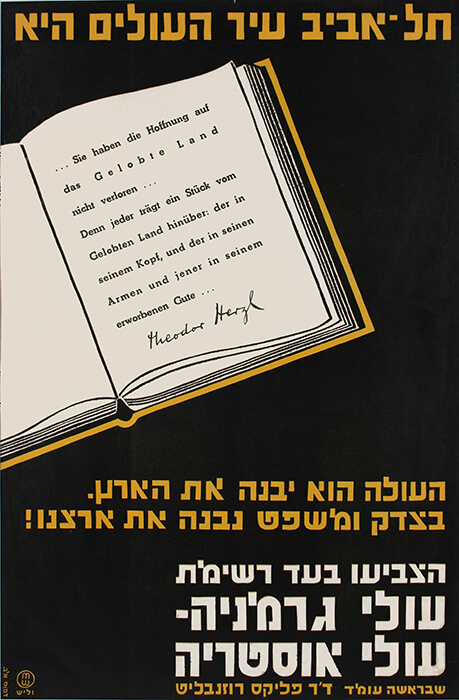 תל-אביב עיר העולים היא
... Sie haben die Hoffnung auf
das Gelobte Land
nicht verloren ...
Denn jeder trägt ein Stück vom
Gelobten Land hinüber: der in
seinem Kopf, und der in seinen
Armen und jener in seinem
erworbenen Gute ...
Theodor Herzl
העולה הוא יבנה את הארץ.
בצדק ומשפט נבנה את ארצנו!
הצביעו בעד רשימת
עולי גרמניה-
עולי אוסטריה
שבראשה עומד ד"ר פליקס רוזנבליט
וליש